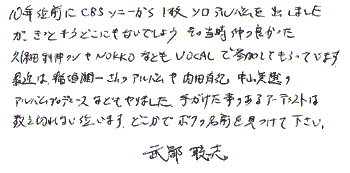 10年近前にCBSソニーから1枚ソロアルバムを出しました
が、きっともうどこにもないでしょう その当時仲の良かった
久保田利伸クンやNOKKOなどもVOCALで参加してもらっています
最近は、稲垣潤一さんのアルバムや内田有紀、中山美穂の
アルバムプロデュースなどもやりました、手がけた事のあるアーティストは
数えきれない位います、どこかでボクの名前を見つけて下さい。
武部聡志